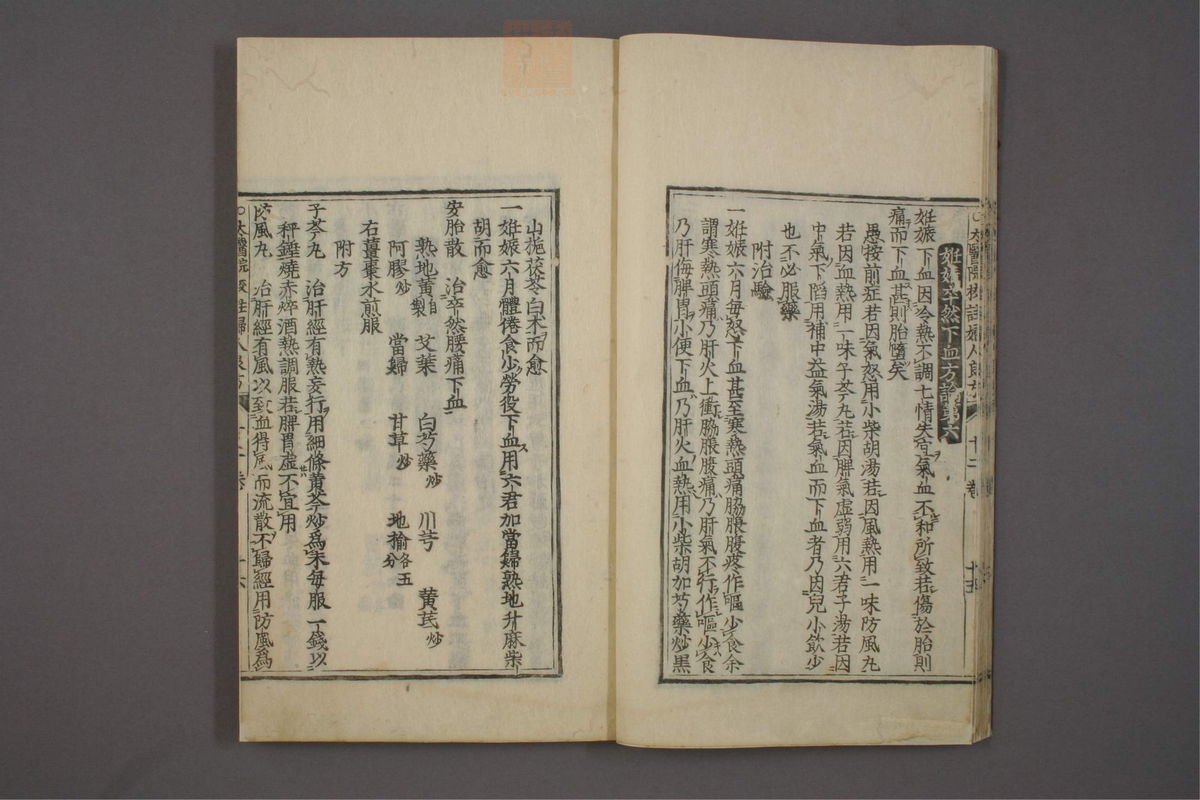 ○太醫院校註婦人良方 十二卷 十五
妊娠卒然下血方論第六
妊娠下血因冷熱不調七情失宜氣血不和所致若傷於胎則
痛而下血甚則胎墮矣
愚按前症若因氣怒用小柴胡湯若因風熱用一味防風丸
若因血熱用一味子芩丸若因脾氣虛弱用六君子湯若因
中氣下陷用補中益氣湯若氣血而下血者乃因兒小飲少
也不必服藥
附治驗
一妊娠六月每怒下血甚至寒熱頭痛脇脹腹疼作嘔少食余
謂寒熱頭痛乃肝火上衝脇脹腹痛乃肝氣不行作嘔少食
乃肝侮脾胃小便下血乃肝火血熱用小柴胡加芍藥炒黑
山梔茯苓白朮而愈
一妊娠六月體倦食少勞役下血用六君加當歸熟地升麻柴
胡而愈
安胎散 治卒然腰痛下血
熟地黃自製 艾葉 白芍藥炒 川芎 黃芪炒
阿膠炒 當歸 甘草炒 地榆各五分
右薑棗水煎服
附方
子芩丸 治肝經有熱妄行用細條黃芩炒爲末每服一錢以
秤錘燒赤焠酒熱調服若脾胃虛不宜用
防風丸 治肝經有風以致血得風而流散不歸經用防風爲
○太醫院校註婦人良方 十二卷 十六